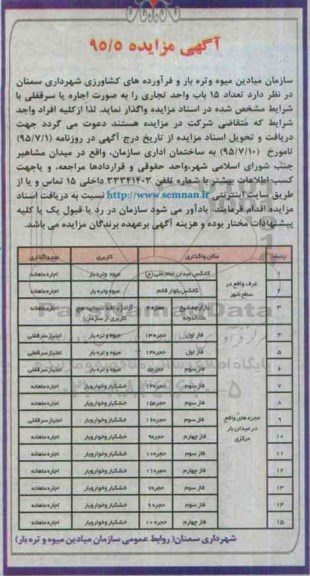 آگهی مزایده ۹۵/۵
سازمان میادین میوه وتره بار و فرآورده های کشاورزی شهرداری سمنان
در نظر دارد تعداد ۱۵ باب واحد تجاری را به صورت اجاره یا سرقفلی با
شرایط مشخص شده در اسناد مزایده واگذار نماید. لذا ازکلیه افراد واجد
شرایط که متقاضی شرکت در مزایده هستند، دعوت می گردد جهت
دریافت و تحویل اسناد مزایده از تاریخ درج آگهی در روزنامه (۹۵/۷/۱)
تامورخ (۹۵/۷/۱۰) به ساختمان اداری سازمان، واقع در میدان مشاهیر
جنب شورای اسلامی شهر،واحد حقوقی و قراردادها مراجعه، و یاجهت
کسب اطلاعات بیشتر با شماره تلفن ۳۳۳۴۱۴۰۳ داخلی ۱۵ تماس و یا از
طریق سایت اینترنتی http://www.semnan.ir نسبت به دریافت اسناد
مزایده اقدام فرمایند. یادآور می شود سازمان در رد یا قبول یک یا کلیه
پیشنهادات مختار بوده و هزینه آگهی برعهده برندگان مزایده می باشد.
ردیف مکان واگذاری کاربری نوع واگذاری
غرف واقع در سطح شهر
کانکس میدان امام علی (ع) میوه وتره بار اجاره ماهانه
۲ کانکس بلوار قائم میوه وتره بار اجاره ماهانه
اجاره ماهانه
حجره های واقع در میدان بار مرکزی
فاز اول میوه و تره بار امتیاز سرقفلی
۵ فاز اول میوه و تره بار امتیاز سرقفلی
۶ فاز سوم میوه وتره بار امتیاز سرقفلی
۷ فاز سوم خشکبار وخواروبار اجاره ماهانه
۸ فاز سوم خشکبار وخواروبار اجاره ماهانه
۹ فاز سوم خشکبار وخواروبار امتیاز سرقفلی
۱۰ فاز چهارم خشکبار وخواروبار اجاره ماهانه
۱۱ فاز چهارم خشکبار وخواروبار اجاره ماهانه
۱۲ فاز چهارم خشکبار وخواروبار اجاره ماهانه
۱۳ فاز سوم خشکبار وخواروبار اجاره ماهانه
۱۴ فاز سوم خشکبار وخواروبار اجاره ماهانه
۱۵ فاز چهارم خشکبار وخواروبار اجاره ماهانه
شهرداری سمنان( روابط عمومی سازمان میادین میوه و تره بار)